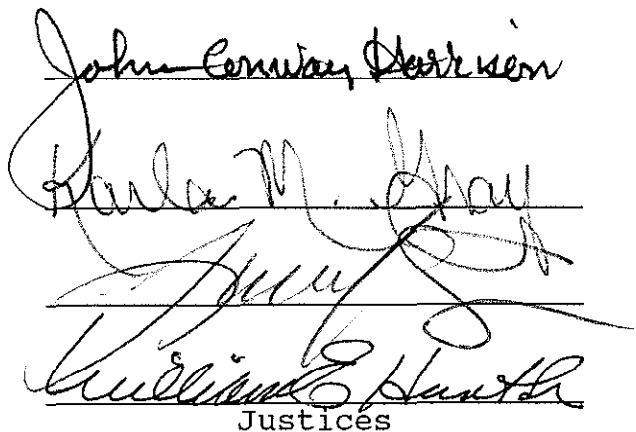 John Conway Harrison
Karla M. Gray
William E Hunt
Justices